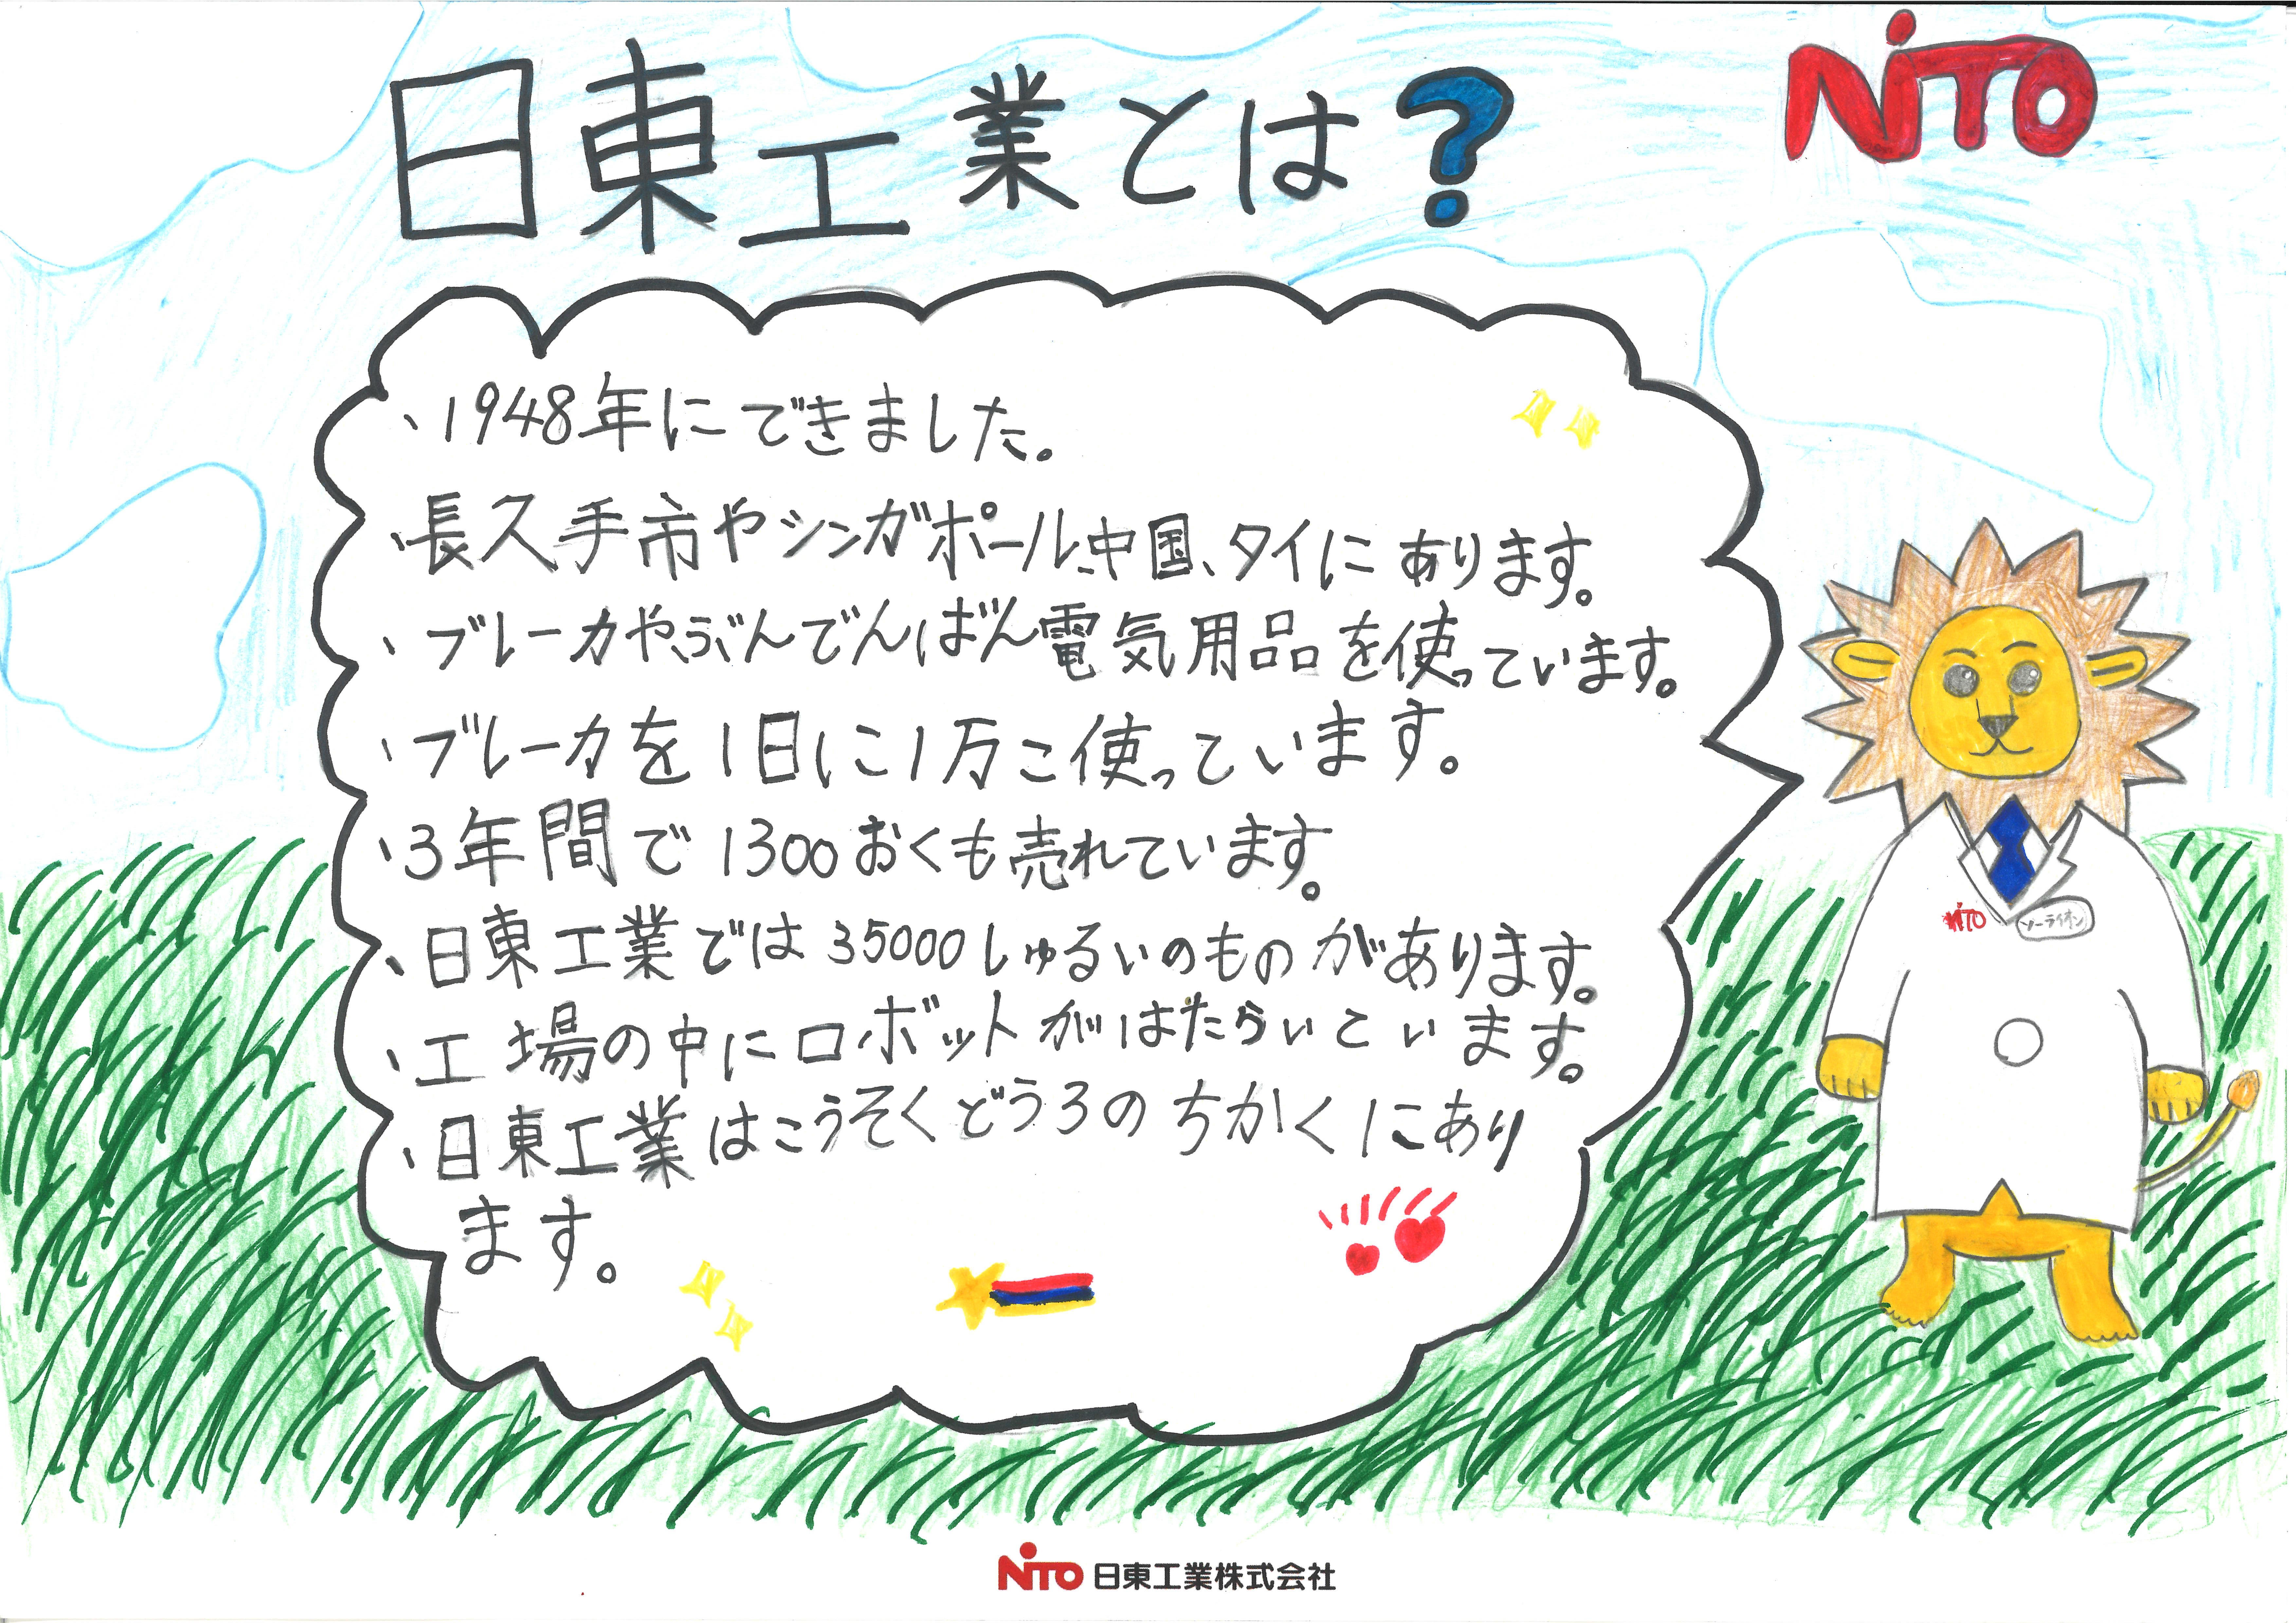 日東工業とは?
NiTO
、1948年にできました。
、長久手市やシンガポール、中国、タイにあります。
、ブレーカやぶんでんばん電気用品を使っています。
、ブレーカを1日に1万こ使っています。
、3年間で1300おくも売れています。
、日東工業では35000しゅるいのものがあります。
、工場の中にロボットがはたらいてい ます。
、日東工業はこうそくどうろのちかくにあり
ます。
NiTO
ソーライオン
NiTO 日東工業株式会社